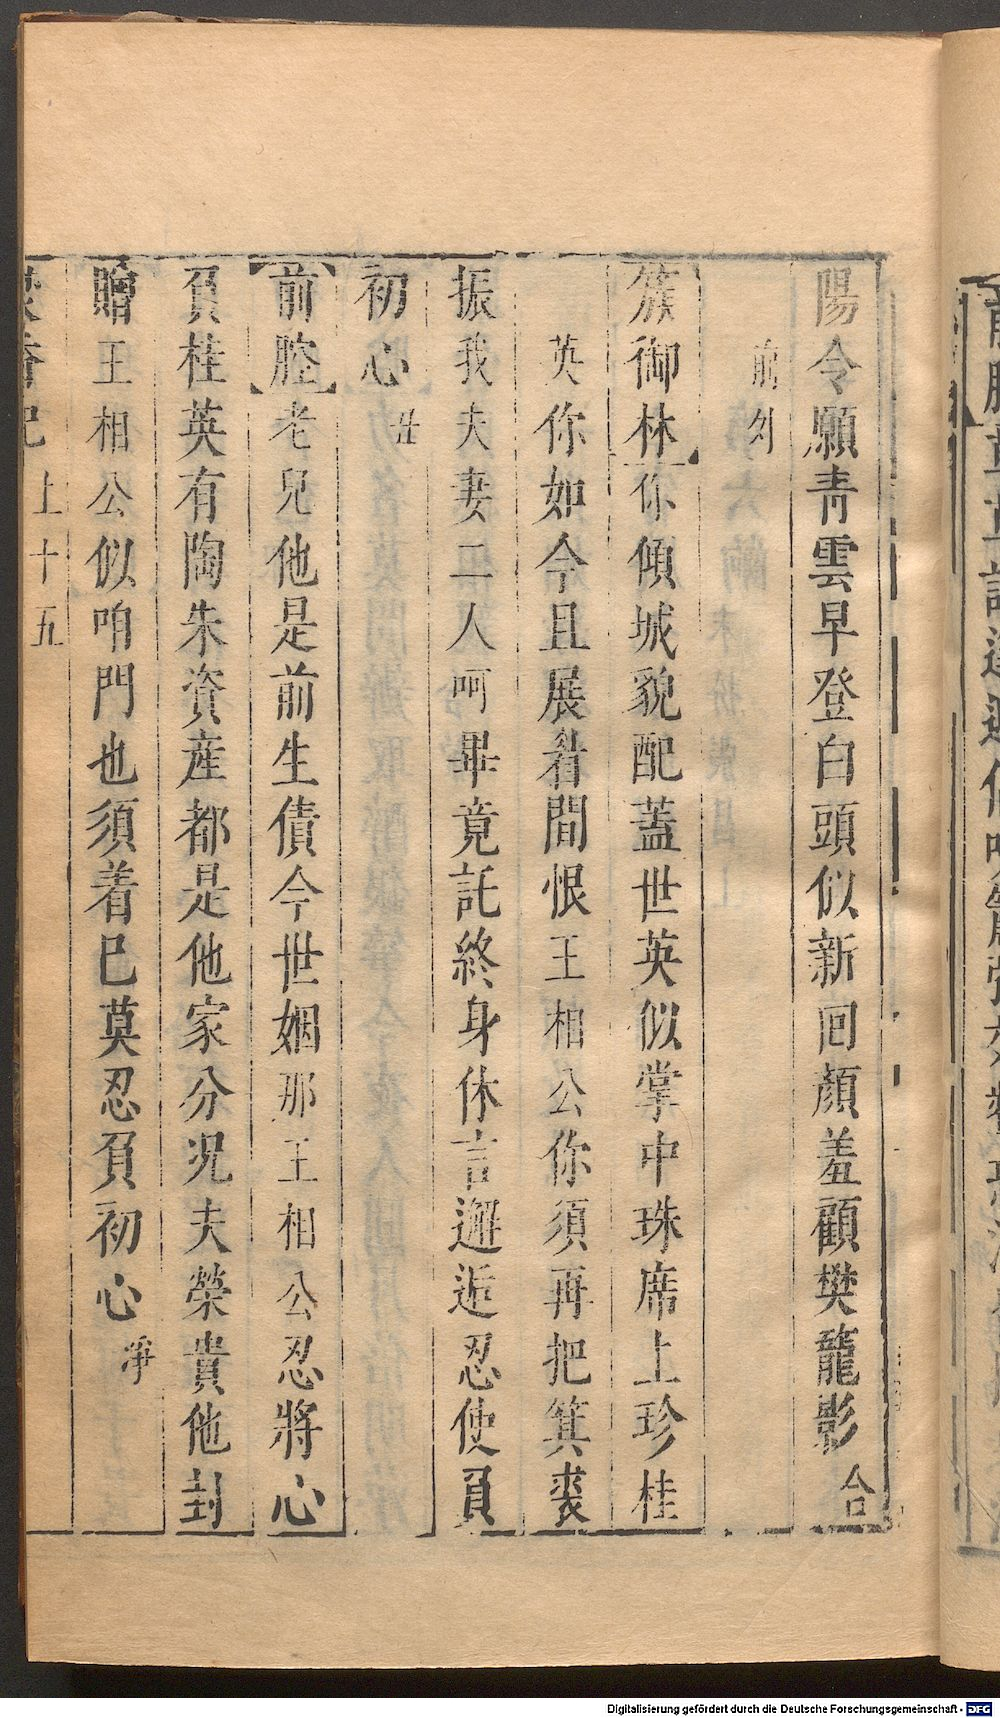 陽令願青雲早登白頭似新囘顏羞顧樊籠影合
前外
簇御林你傾城貌配蓋世英似掌中珠席上珍桂
英你如今且展眉間恨王相公你須再把箕裘
振我夫妻二人呵畢竟託終身休言邂逅忍使負
初心丑
前腔老兒他是前生債今世姻那王相公忍將心
負桂英有陶朱資產都是他家分況夫榮貴他封
贈王相公似咱門也須着已莫忍負初心淨
焚香記 上 十五
Digitalisierung gefördert durch die Deutsche Forschungsgemeinschaft - DFG